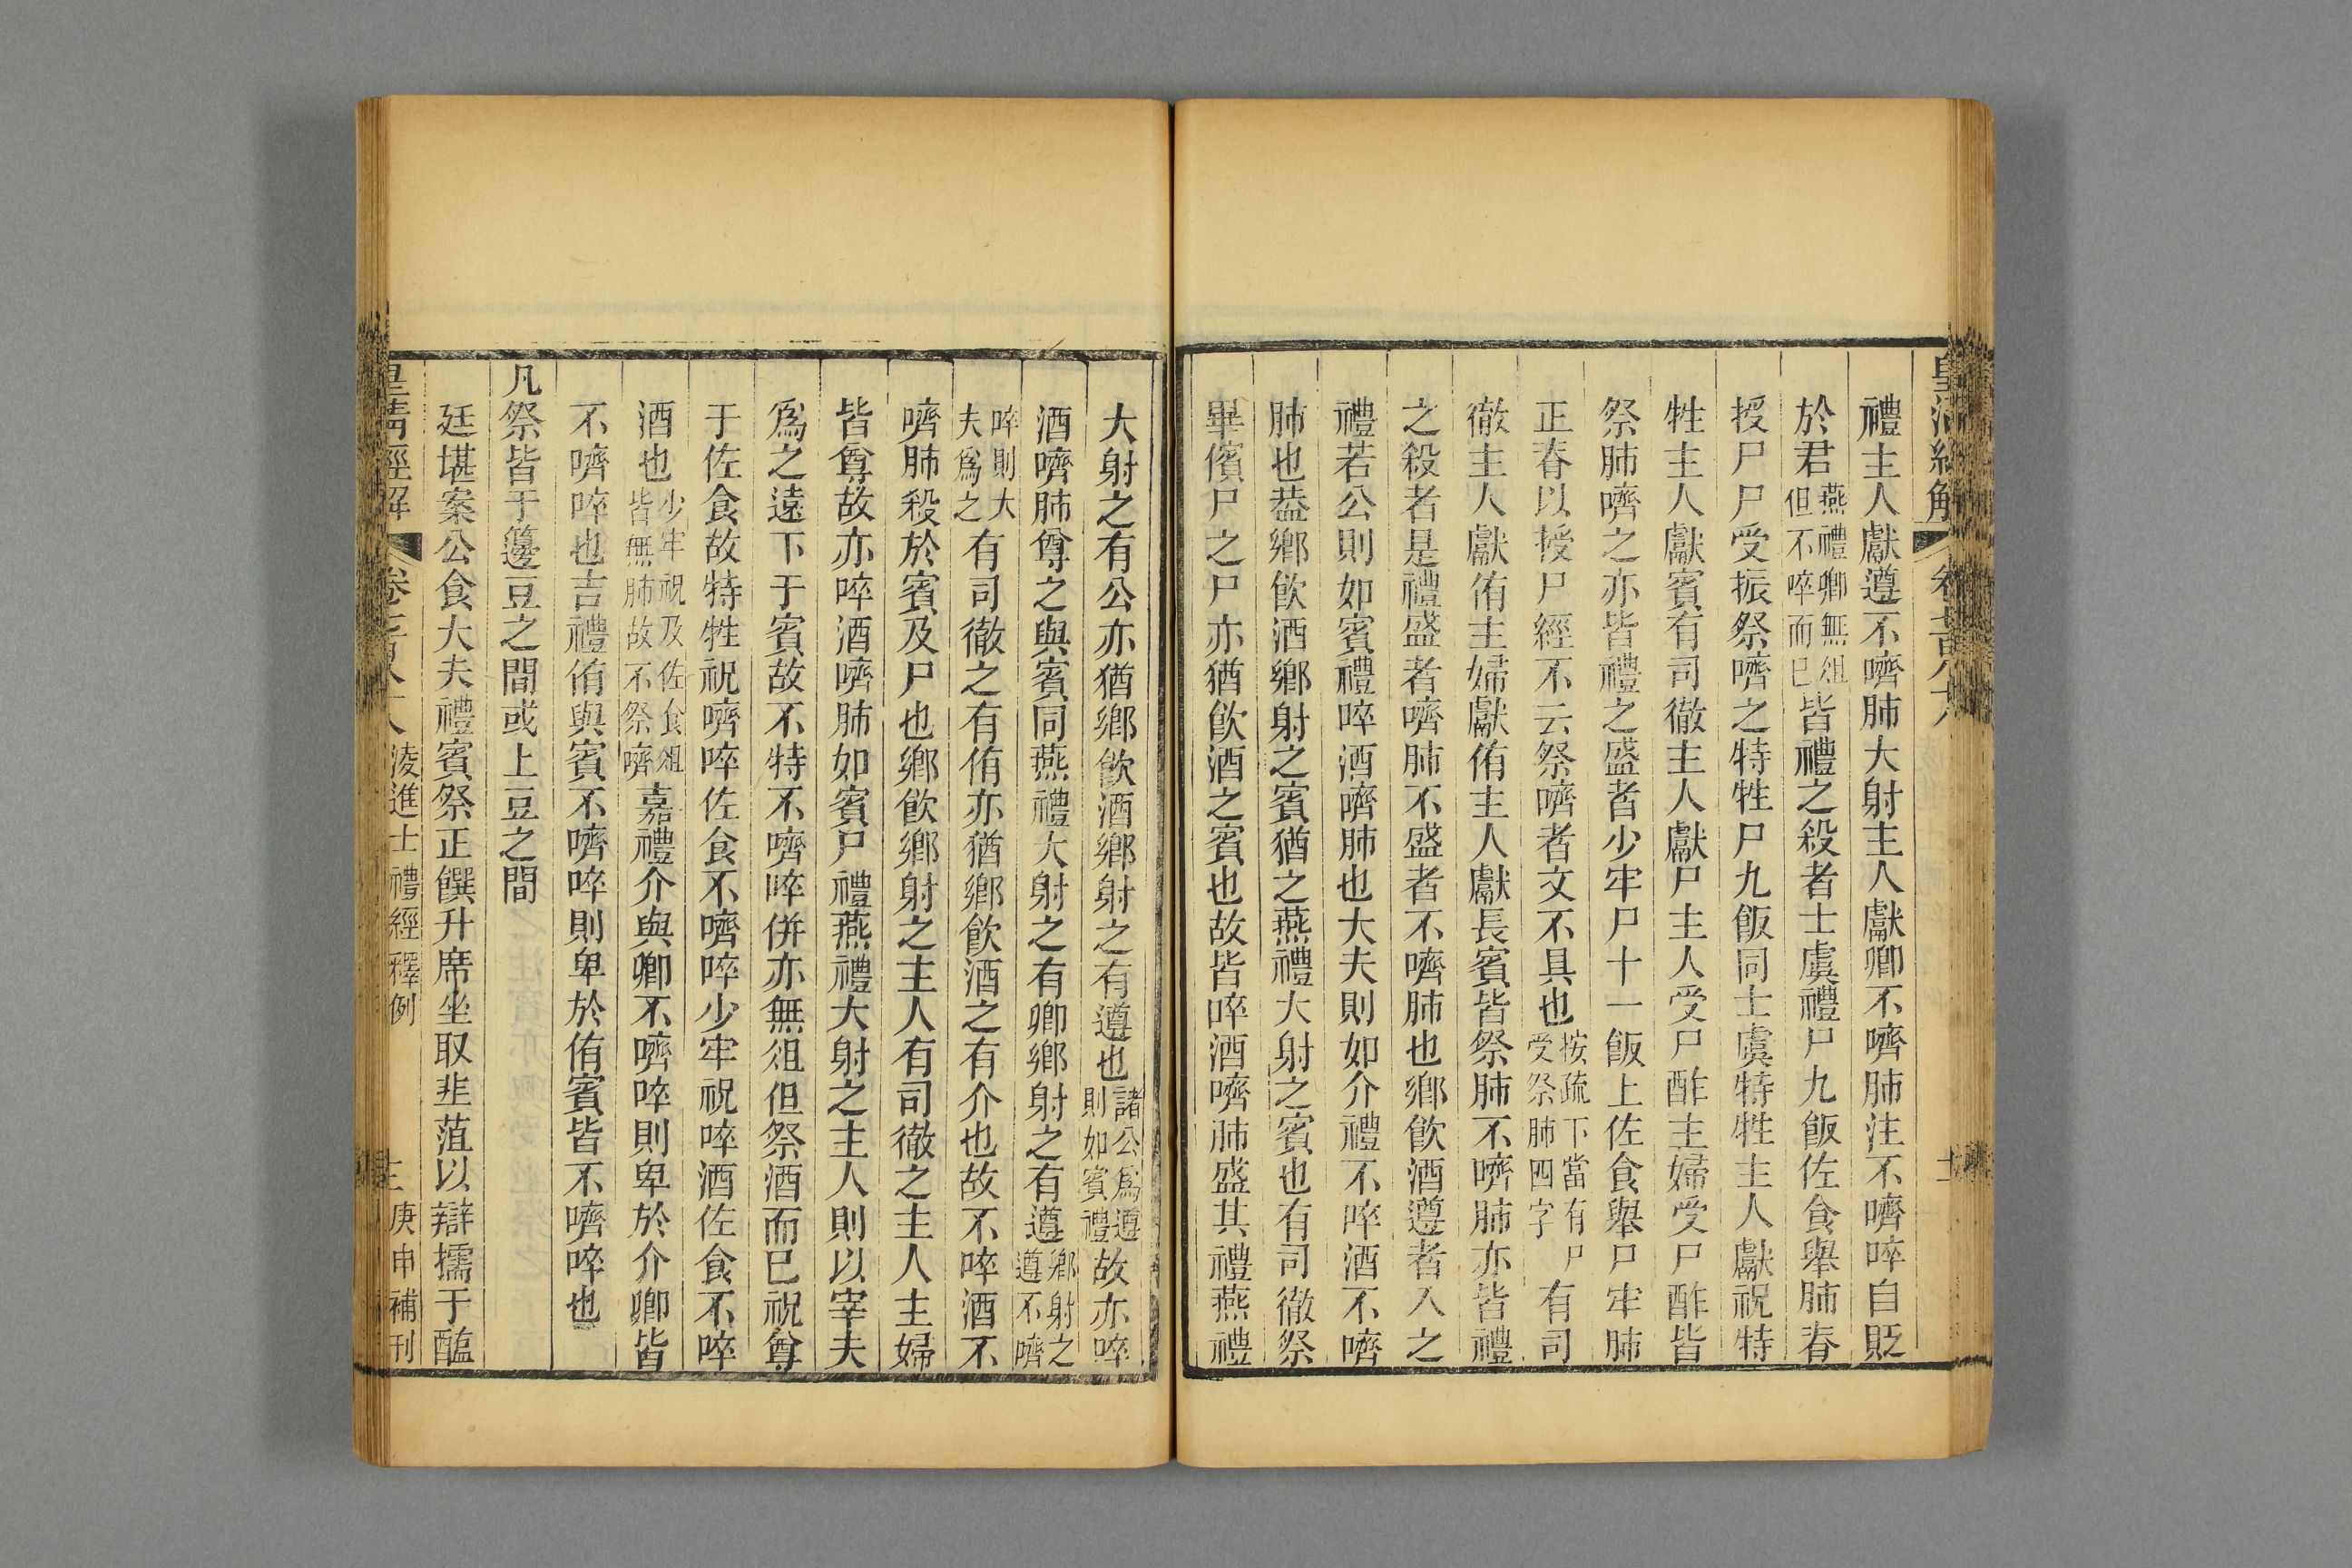 禮主人獻遵不嚌肺大射主人獻卿不嚌肺注不嚌啐自貶
於君燕禮卿無俎但不啐而已皆禮之殺者士虞禮尸九飯佐食舉肺脊
授尸尸受振祭嚌之特牲尸九飯同士虞特牲主人獻祝特
牲主人獻賓有司徹主人獻尸主人受尸酢主婦受尸酢皆
祭肺嚌之亦皆禮之盛者少牢尸十一飯上佐食舉尸牢肺
正脊以授尸經不云祭嚌者文不具也按疏下當有尸受祭肺四字有司
徹主人獻侑主婦獻侑主人獻長賓皆祭肺不嚌肺亦皆禮
之殺者是禮盛者嚌肺不盛者不嚌肺也鄉飲酒遵者入之
禮若公則如賓禮啐酒嚌肺也大夫則如介禮不啐酒不嚌
肺也葢鄉飲酒鄉射之賓猶之燕禮大射之賓也有司徹祭
畢儐尸之尸亦猶飲酒之賓也故皆啐酒嚌肺盛其禮燕禮
大射之有公亦猶鄉飲酒鄉射之有遵也諸公爲遵則如賓禮故亦啐
酒嚌肺尊之與賓同燕禮大射之有卿鄉射之有遵鄉射之遵不嚌
啐則大夫爲之有司徹之有侑亦猶鄉飲酒之有介也故不啐酒不
嚌肺殺於賓及尸也鄉飲鄉射之主人有司徹之主人主婦
皆尊故亦啐酒嚌肺如賓尸禮燕禮大射之主人則以宰夫
爲之遠下于賓故不特不嚌啐併亦無俎但祭酒而已祝尊
于佐食故特牲祝嚌啐佐食不嚌啐少牢祝啐酒佐食不啐
酒也少牢祝及佐食俎皆無肺故不祭嚌嘉禮介與卿不嚌啐則卑於介卿皆
不嚌啐也吉禮侑與賓不嚌啐則卑於侑賓皆不嚌啐也
凡祭皆于籩豆之間或上豆之間
廷堪案公食大夫禮賓祭正饌升席坐取韭菹以辯擩于醢
皇清經解
淩進士禮經釋例
庚申補刊